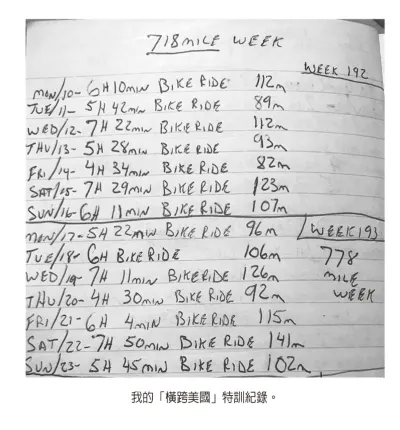 718 MILE WEEK
WEEK 192
MON/10- 6H 10MIN BIKE RIDE 112m
TUE/11- 5H 42MIN BIKE RIDE 89m
WED/12- 7H 22MIN BIKE RIDE 112m
THU/13- 5H 28MIN BIKE RIDE 93m
FRI/14- 4H 34MIN BIKE RIDE 82m
SAT/15- 7H 29MIN BIKE RIDE 123m
SUN/16- 6H 11MIN BIKE RIDE 107m
MON/17- 5H 22MIN BIKE RIDE 96m WEEK 193
TUE/18- 6H BIKE RIDE 106m 778
WED/19- 7H 11MIN BIKE RIDE 126m MILE
THU/20- 4H 30MIN BIKE RIDE 92m WEEK
FRI/21- 6H 4MIN BIKE RIDE 115m
SAT/22- 7H 50MIN BIKE RIDE 141m
SUN/23- 5H 45MIN BIKE RIDE 102m
我的「橫跨美國」特訓紀錄。